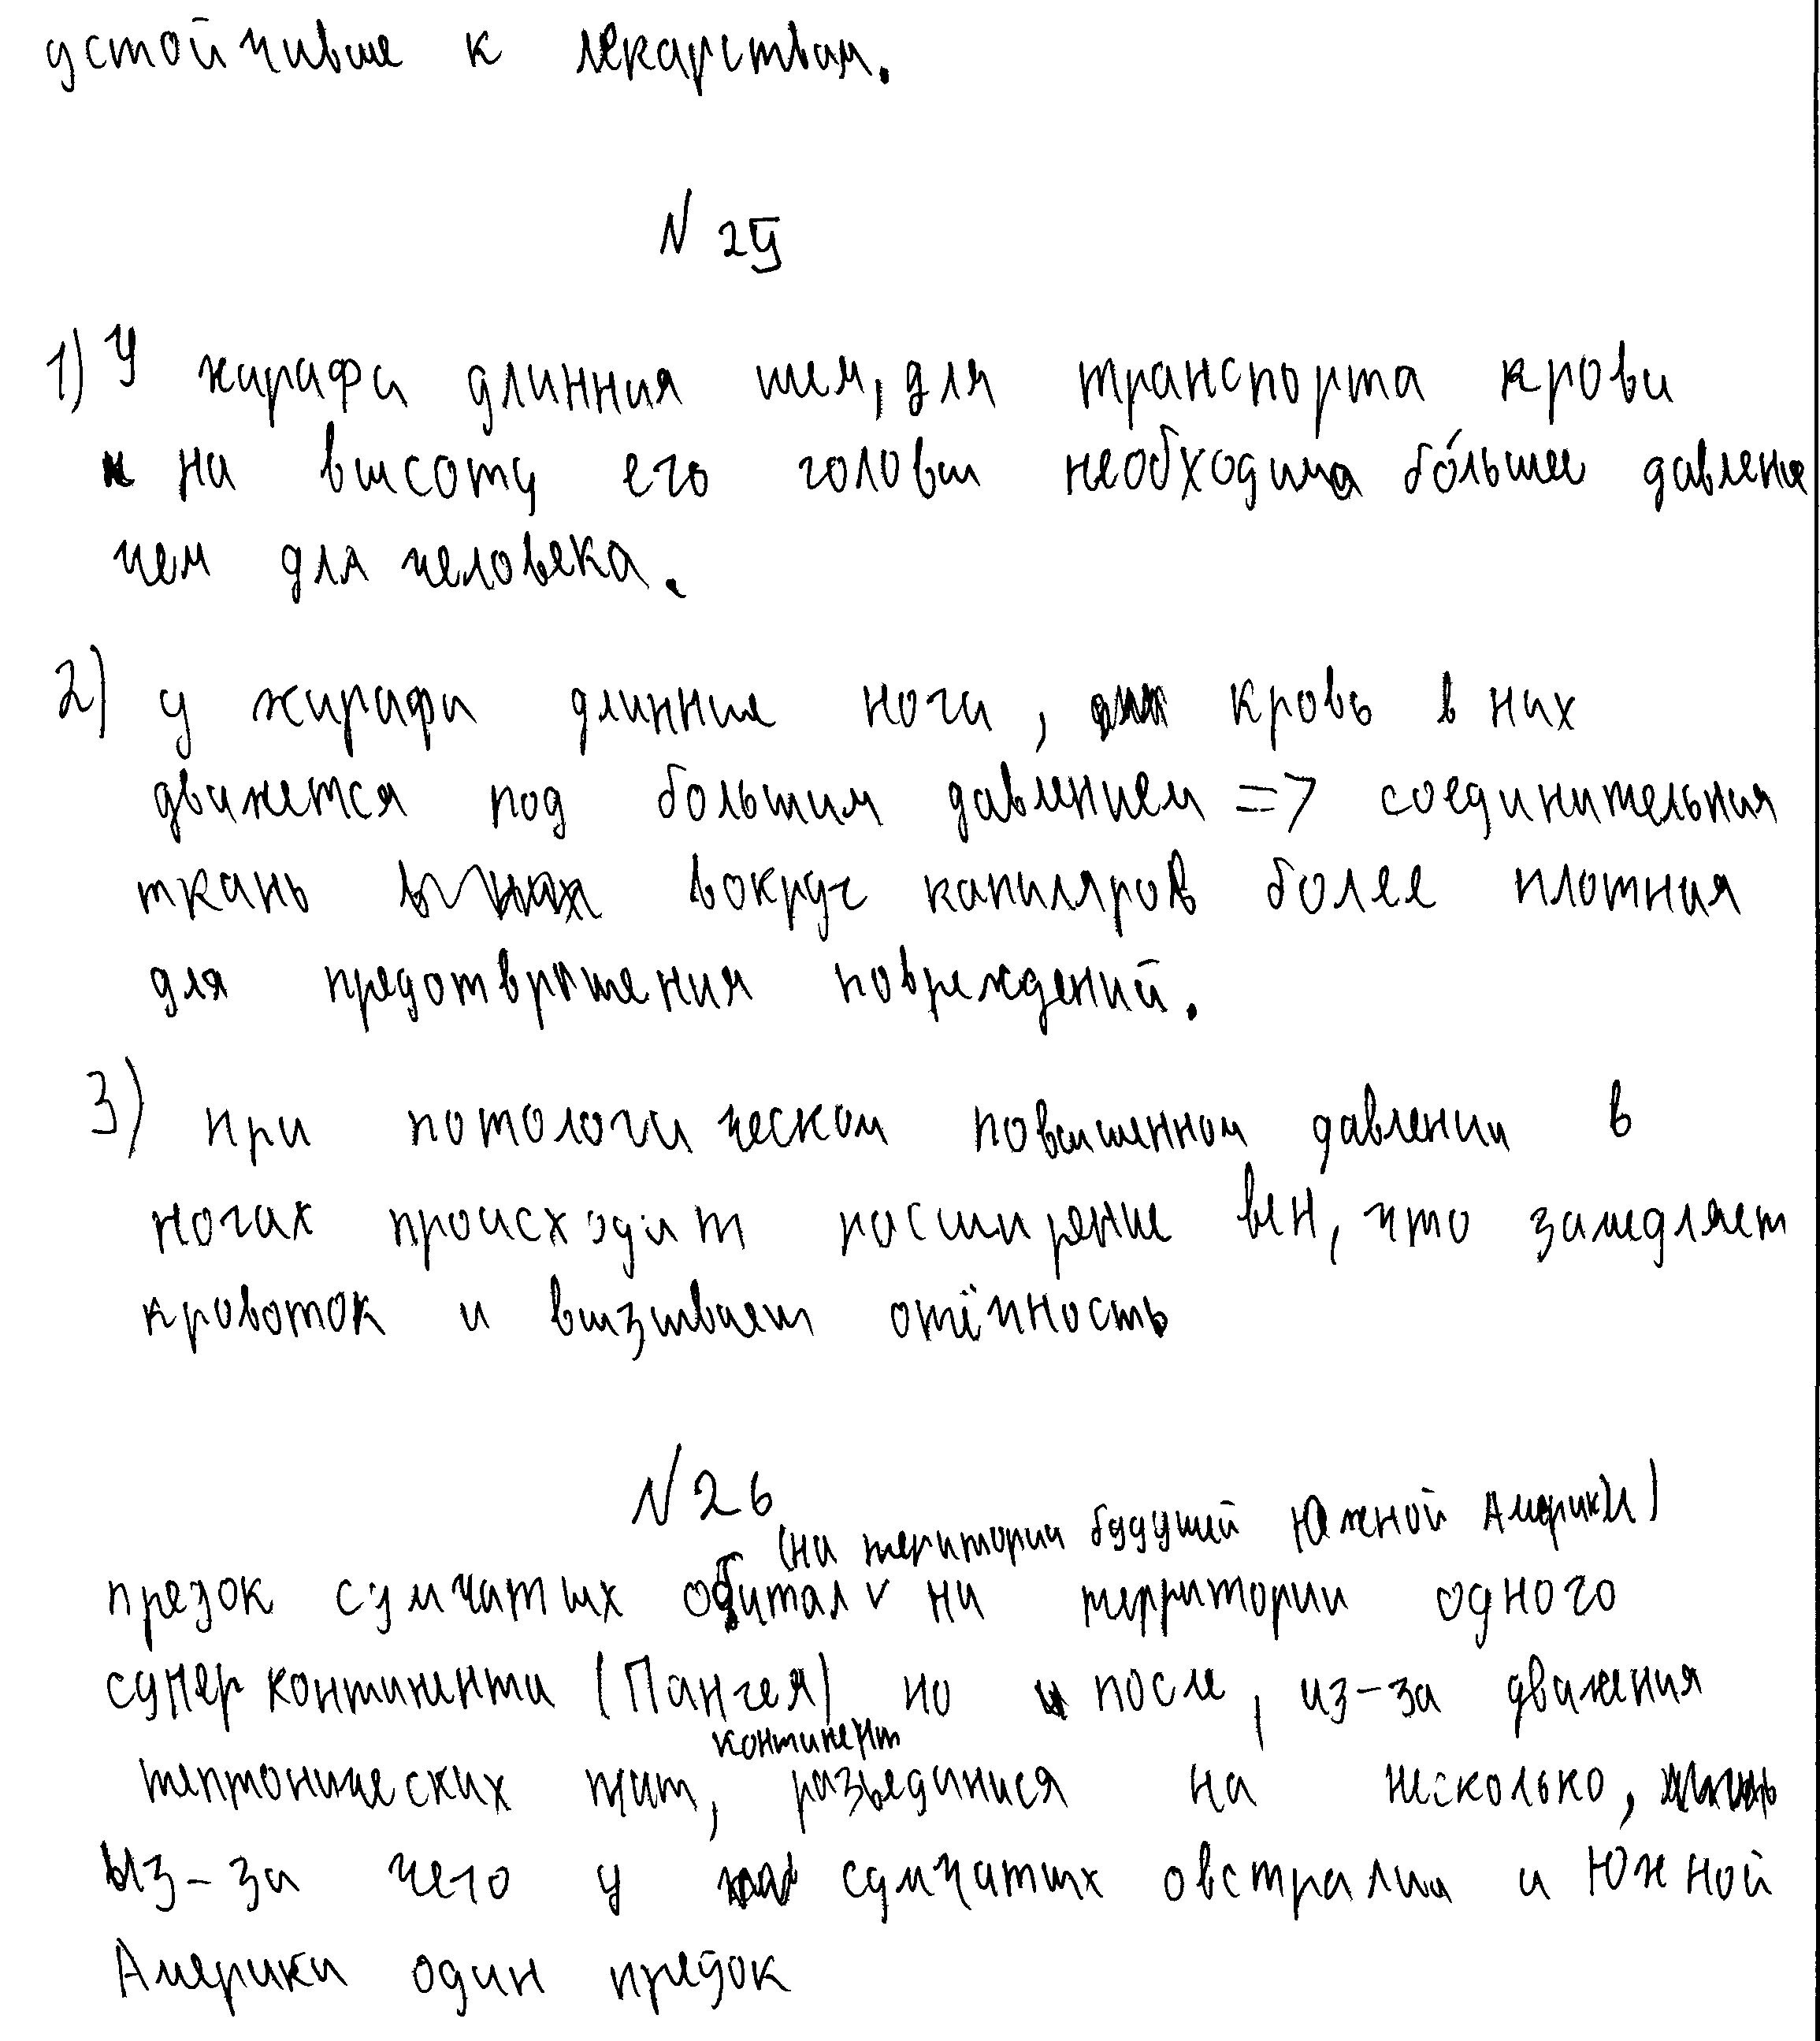 устойчивые к лекарствам.
N 25
1) У жирафа длинная шея, для транспорта крови
на высоту его головы необходима бо́льшее давление
чем для человека.
2) у жирафа длинные ноги, кровь в них
движется под большим давлением => соединительная
ткань вокруг капиляров более плотная
для предотвращения повреждений.
3) при потологическом повышенном давлении в
ногах происходит расширение вен, что замедляет
кровоток и вызывает отёчность
N 26
(на територии будущей Южной Америки)
предок сумчатых обитал v на территории одного
суперконтинента (Пангея) но после, из-за движения
континент
тектонических плит, разъединися на несколько,
Из-за чего у сумчатых овстралии и Южной
Америки один предок